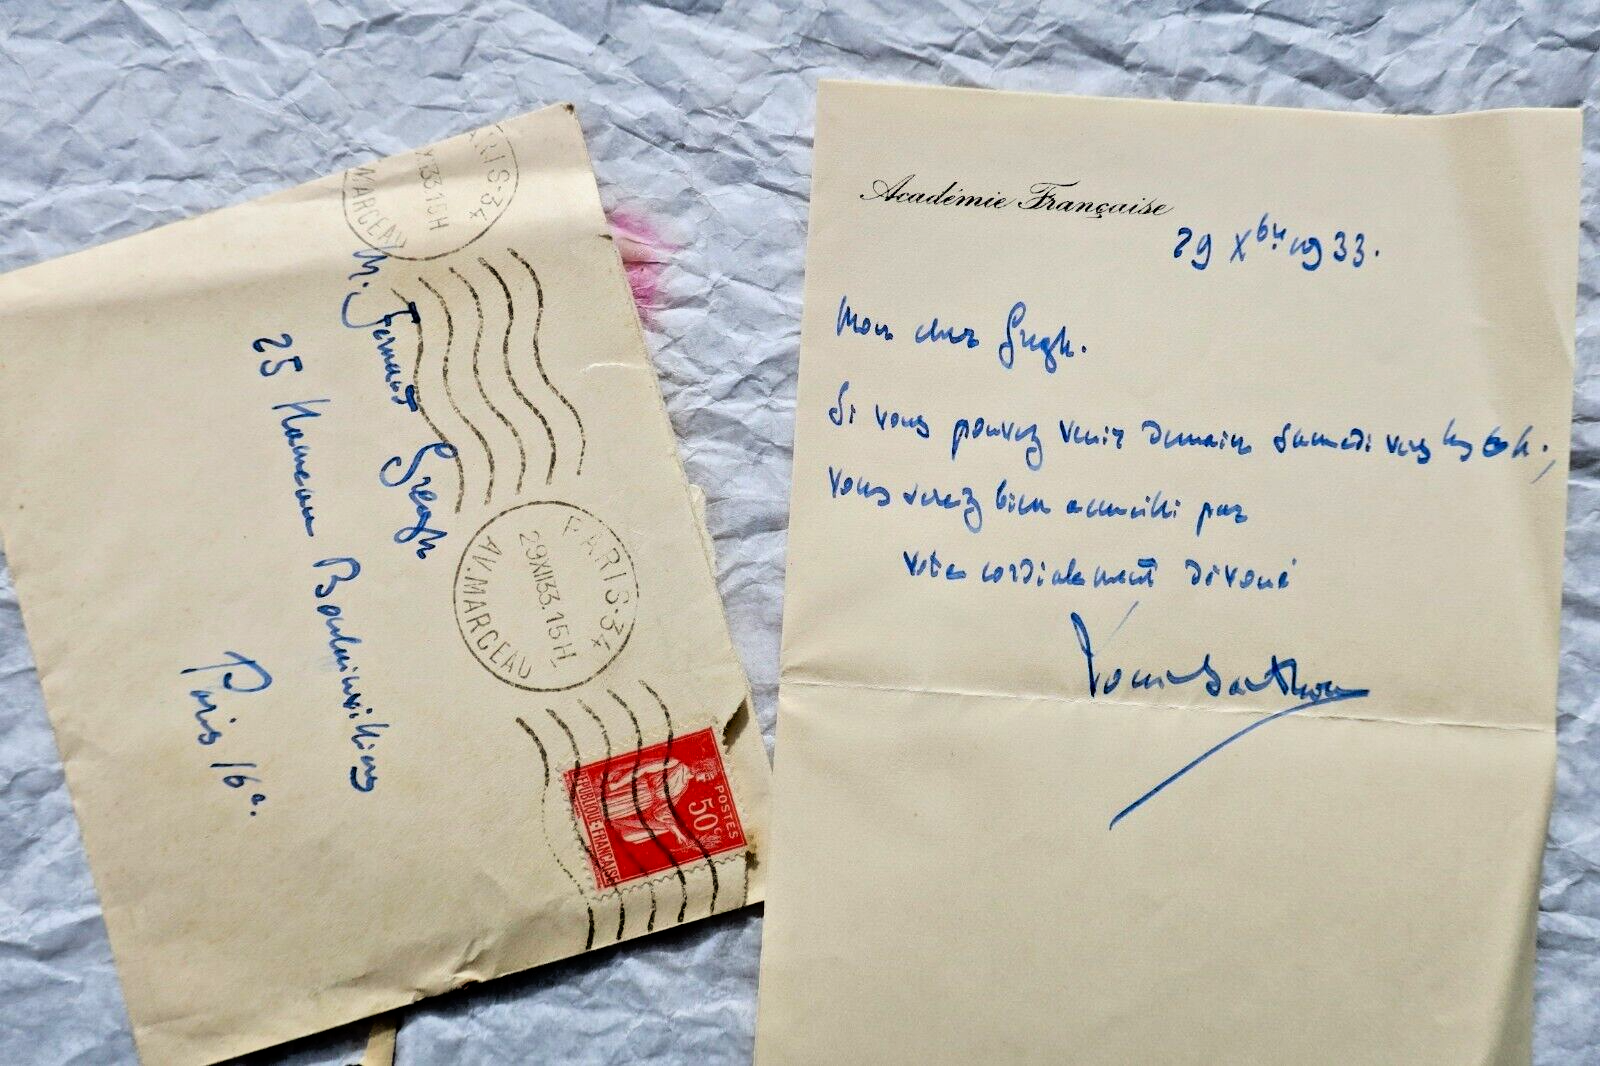 PARIS-34
XII33.15H
MARCEAU
M. Fernand Gregh
25 Hameau Boulainvilliers
Paris 16e.
PARIS-34
29XII33.15H
AV. MARCEAU
POSTES
50c
REPUBLIQUE-FRANCAISE
Académie Française
29 Xbre 1933.
Mon cher Gregh.
Si vous pouvez venir demain samedi vers les 6 h.,
vous serez bien accueilli par
votre cordialement dévoué
Louis Barthou